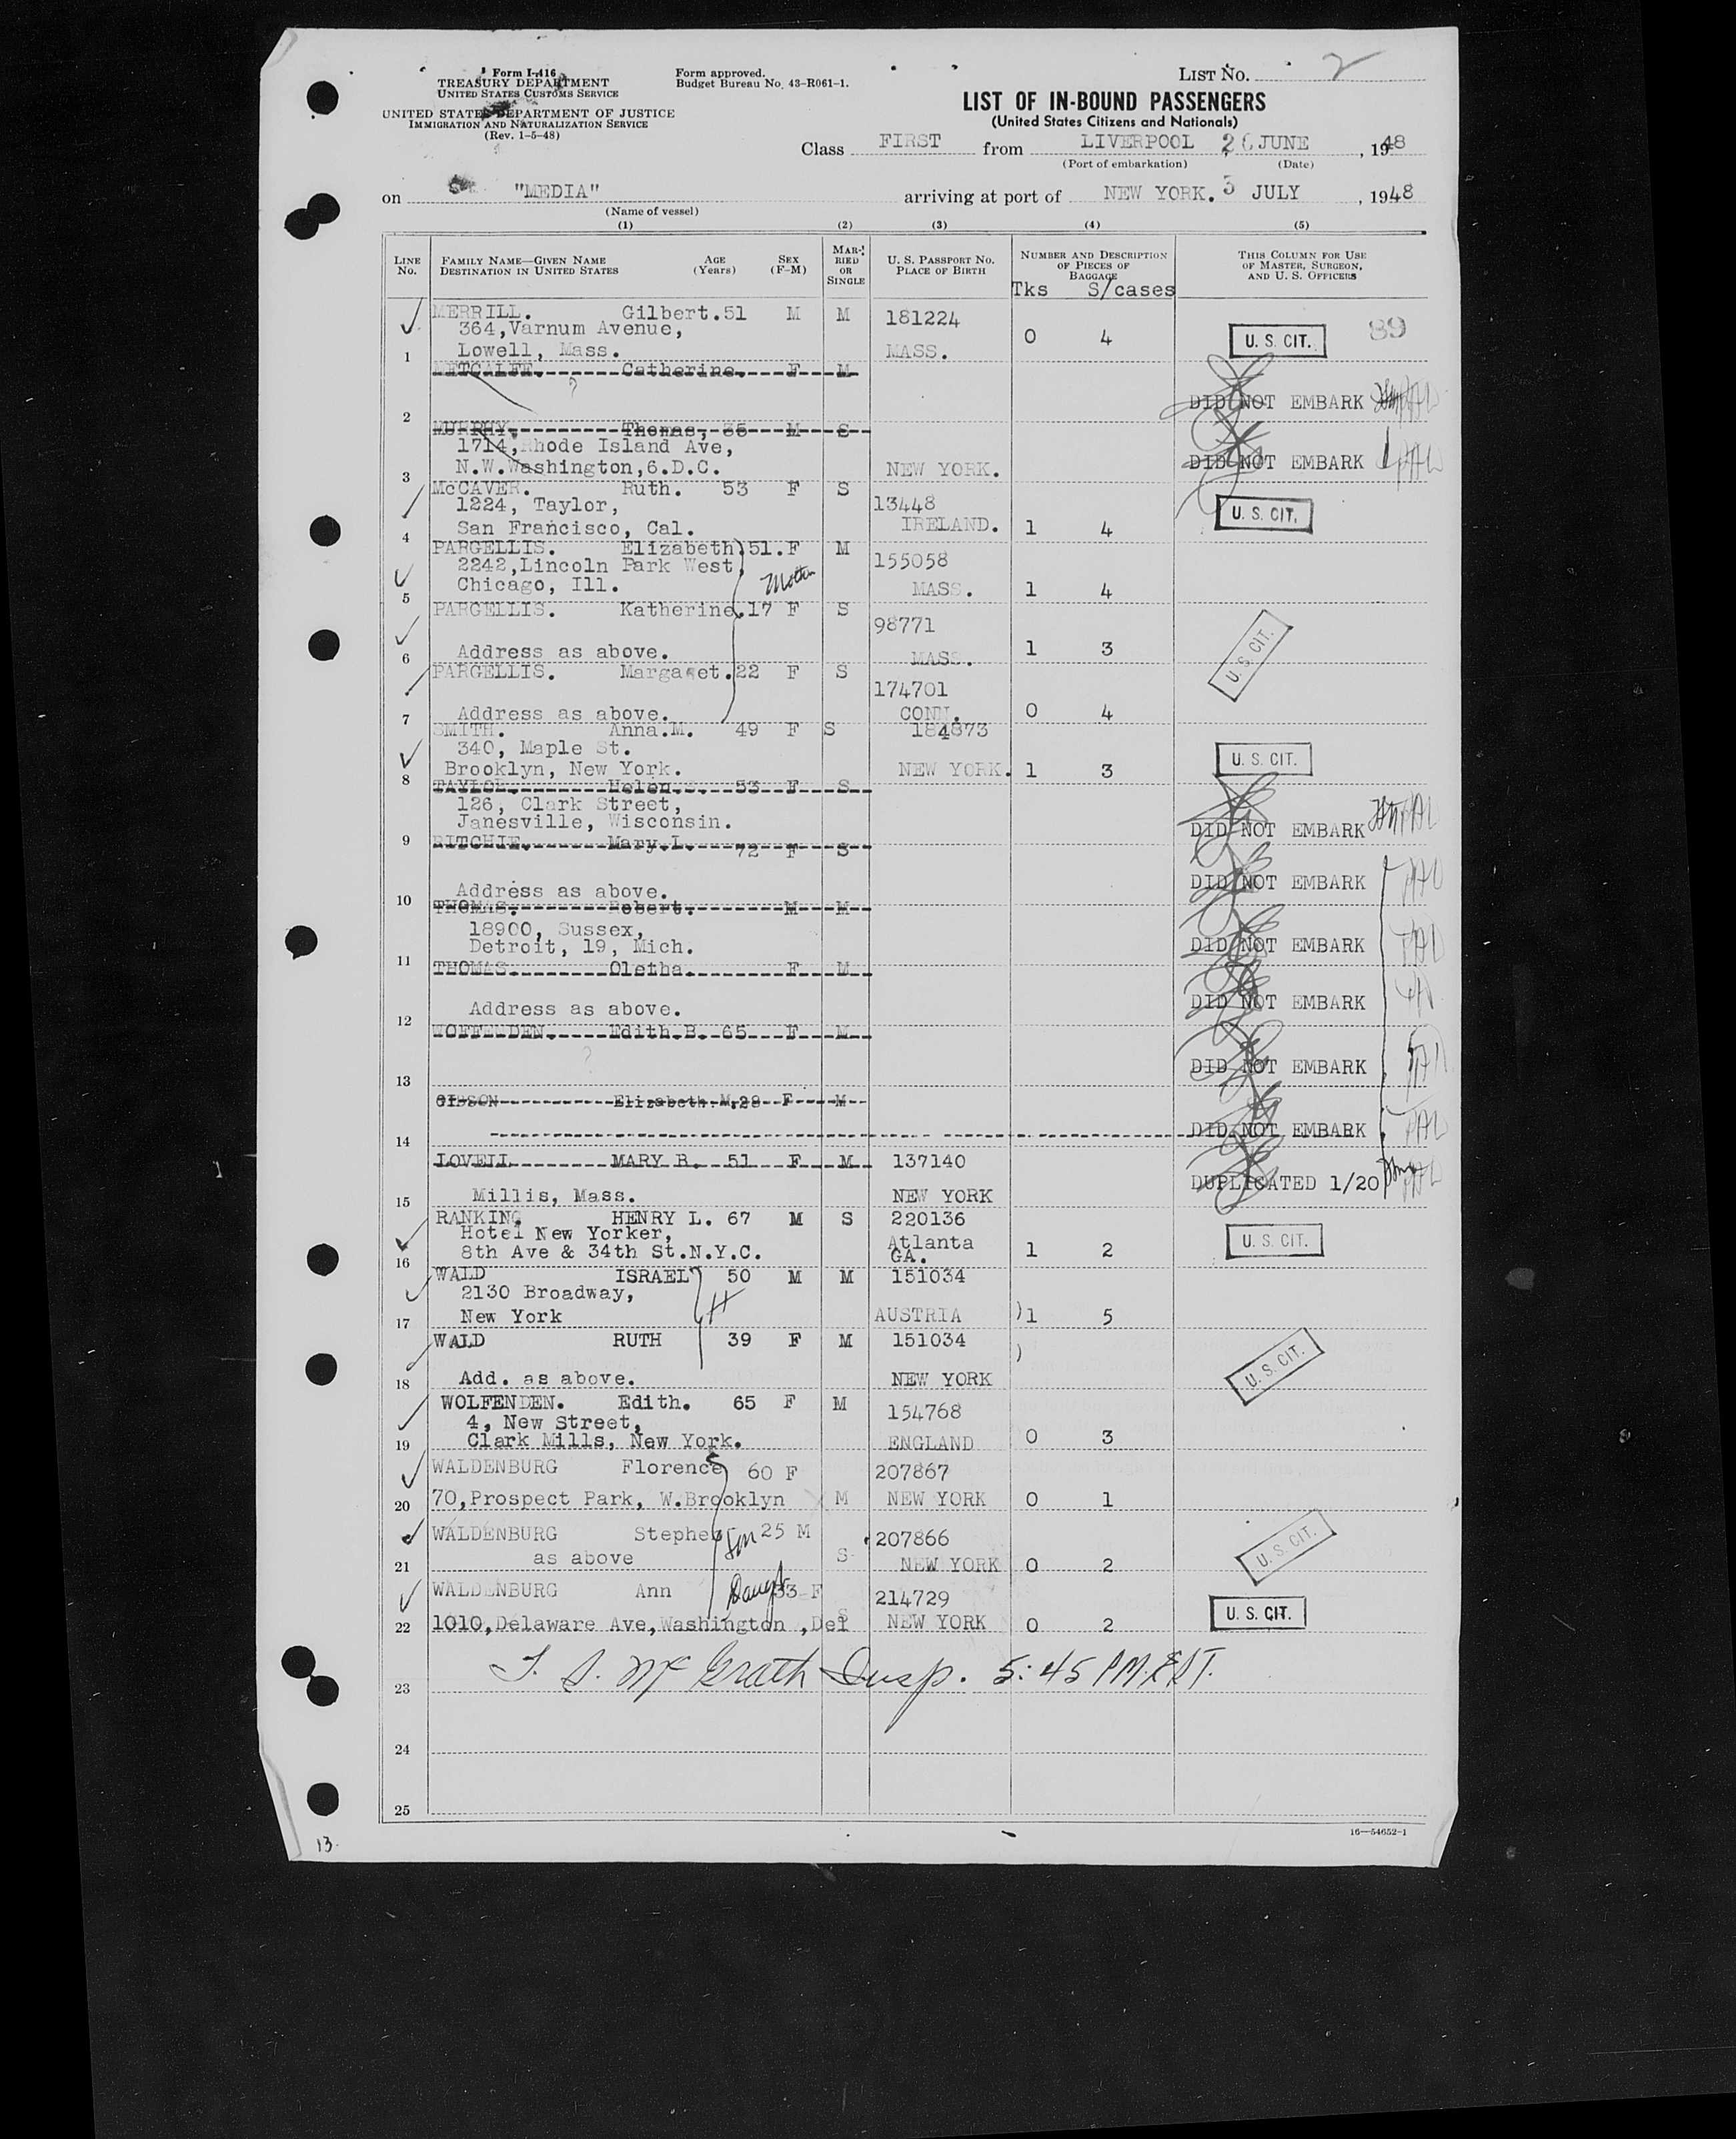 Form I-416
TREASURY DEPARTMENT
UNITED STATES CUSTOMS SERVICE
UNITED STATES DEPARTMENT OF JUSTICE
IMMIGRATION AND NATURALIZATION SERVICE
(Rev. 1-5-48)
Form approved.
Budget Bureau No. 43-R061-1.
LIST NO. 2
LIST OF IN-BOUND PASSENGERS
(United States Citizens and Nationals)
Class FIRST from LIVERPOOL 26 JUNE, 1948
(Port of embarkation) (Date)
on "MEDIA" arriving at port of NEW YORK. 3 JULY, 1948
(Name of vessel)
(1) (2) (3) (4) (5)
LINE NO.
FAMILY NAME—GIVEN NAME AGE SEX
DESTINATION IN UNITED STATES (Years) (F-M)
MARRIED OR SINGLE
U. S. PASSPORT NO.
PLACE OF BIRTH
NUMBER AND DESCRIPTION OF PIECES OF BAGGAGE
Tks S/cases
THIS COLUMN FOR USE OF MASTER, SURGEON, AND U. S. OFFICERS
MERRILL. Gilbert. 51 M M 181224
364, Varnum Avenue, 0 4 U. S. CIT. 89
1 Lowell, Mass. MASS.
METCALFE. Catherine. F M
?
2 DID NOT EMBARK
MURPHY. Thomas, 35 M S
1714, Rhode Island Ave,
3 N.W.Washington,6.D.C. NEW YORK. DID NOT EMBARK
McCAVER. Ruth. 53 F S
1224, Taylor, 13448 U. S. CIT.
4 San Francisco, Cal. IRELAND. 1 4
PARGELLIS. Elizabeth 51. F M
2242,Lincoln Park West. Mother 155058
5 Chicago, Ill. MASS. 1 4
PARGELLIS. Katherine. 17 F S
98771
6 Address as above. MASS. 1 3 U. S. CIT.
PARGELLIS. Margaret. 22 F S
174701
7 Address as above. CONN. 0 4
SMITH. Anna.M. 49 F S 184873
340, Maple St.
8 Brooklyn, New York. NEW YORK. 1 3 U. S. CIT.
TAYLOR. Helen. 53 F S
126, Clark Street,
Janesville, Wisconsin. DID NOT EMBARK
9
RITCHIE. Mary.L. 72 F S
10 Address as above. DID NOT EMBARK
THOMAS. Robert. M M
18900, Sussex,
11 Detroit, 19, Mich. DID NOT EMBARK
THOMAS. Oletha. F M
12 Address as above. DID NOT EMBARK
WOFFENDEN. Edith.B. 65 F M
?
13 DID NOT EMBARK
GIBSON Elizabeth.M. 29 F M
14 DID NOT EMBARK
LOVELL MARY B. 51 F M 137140
15 Millis, Mass. NEW YORK DUPLICATED 1/20
RANKING HENRY L. 67 M S 220136
Hotel New Yorker, Atlanta
16 8th Ave & 34th St.N.Y.C. GA. 1 2 U. S. CIT.
WALD ISRAEL 50 M M 151034
2130 Broadway,
17 New York AUSTRIA )1 5
WALD RUTH 39 F M 151034 )
18 Add. as above. NEW YORK U. S. CIT.
WOLFENDEN. Edith. 65 F M 154768
4, New Street,
19 Clark Mills, New York. ENGLAND 0 3
WALDENBURG Florence 60 F 207867
20 70,Prospect Park, W.Brooklyn M NEW YORK 0 1
WALDENBURG Stephen Son 25 M 207866
21 as above S NEW YORK 0 2 U. S. CIT.
WALDENBURG Ann Daugt 33 F 214729
22 1010,Delaware Ave,Washington ,Del S NEW YORK 0 2 U. S. CIT.
T. S. McGrath Insp. 5:45 PM. EST.
23
24
25
16—54652-1
13